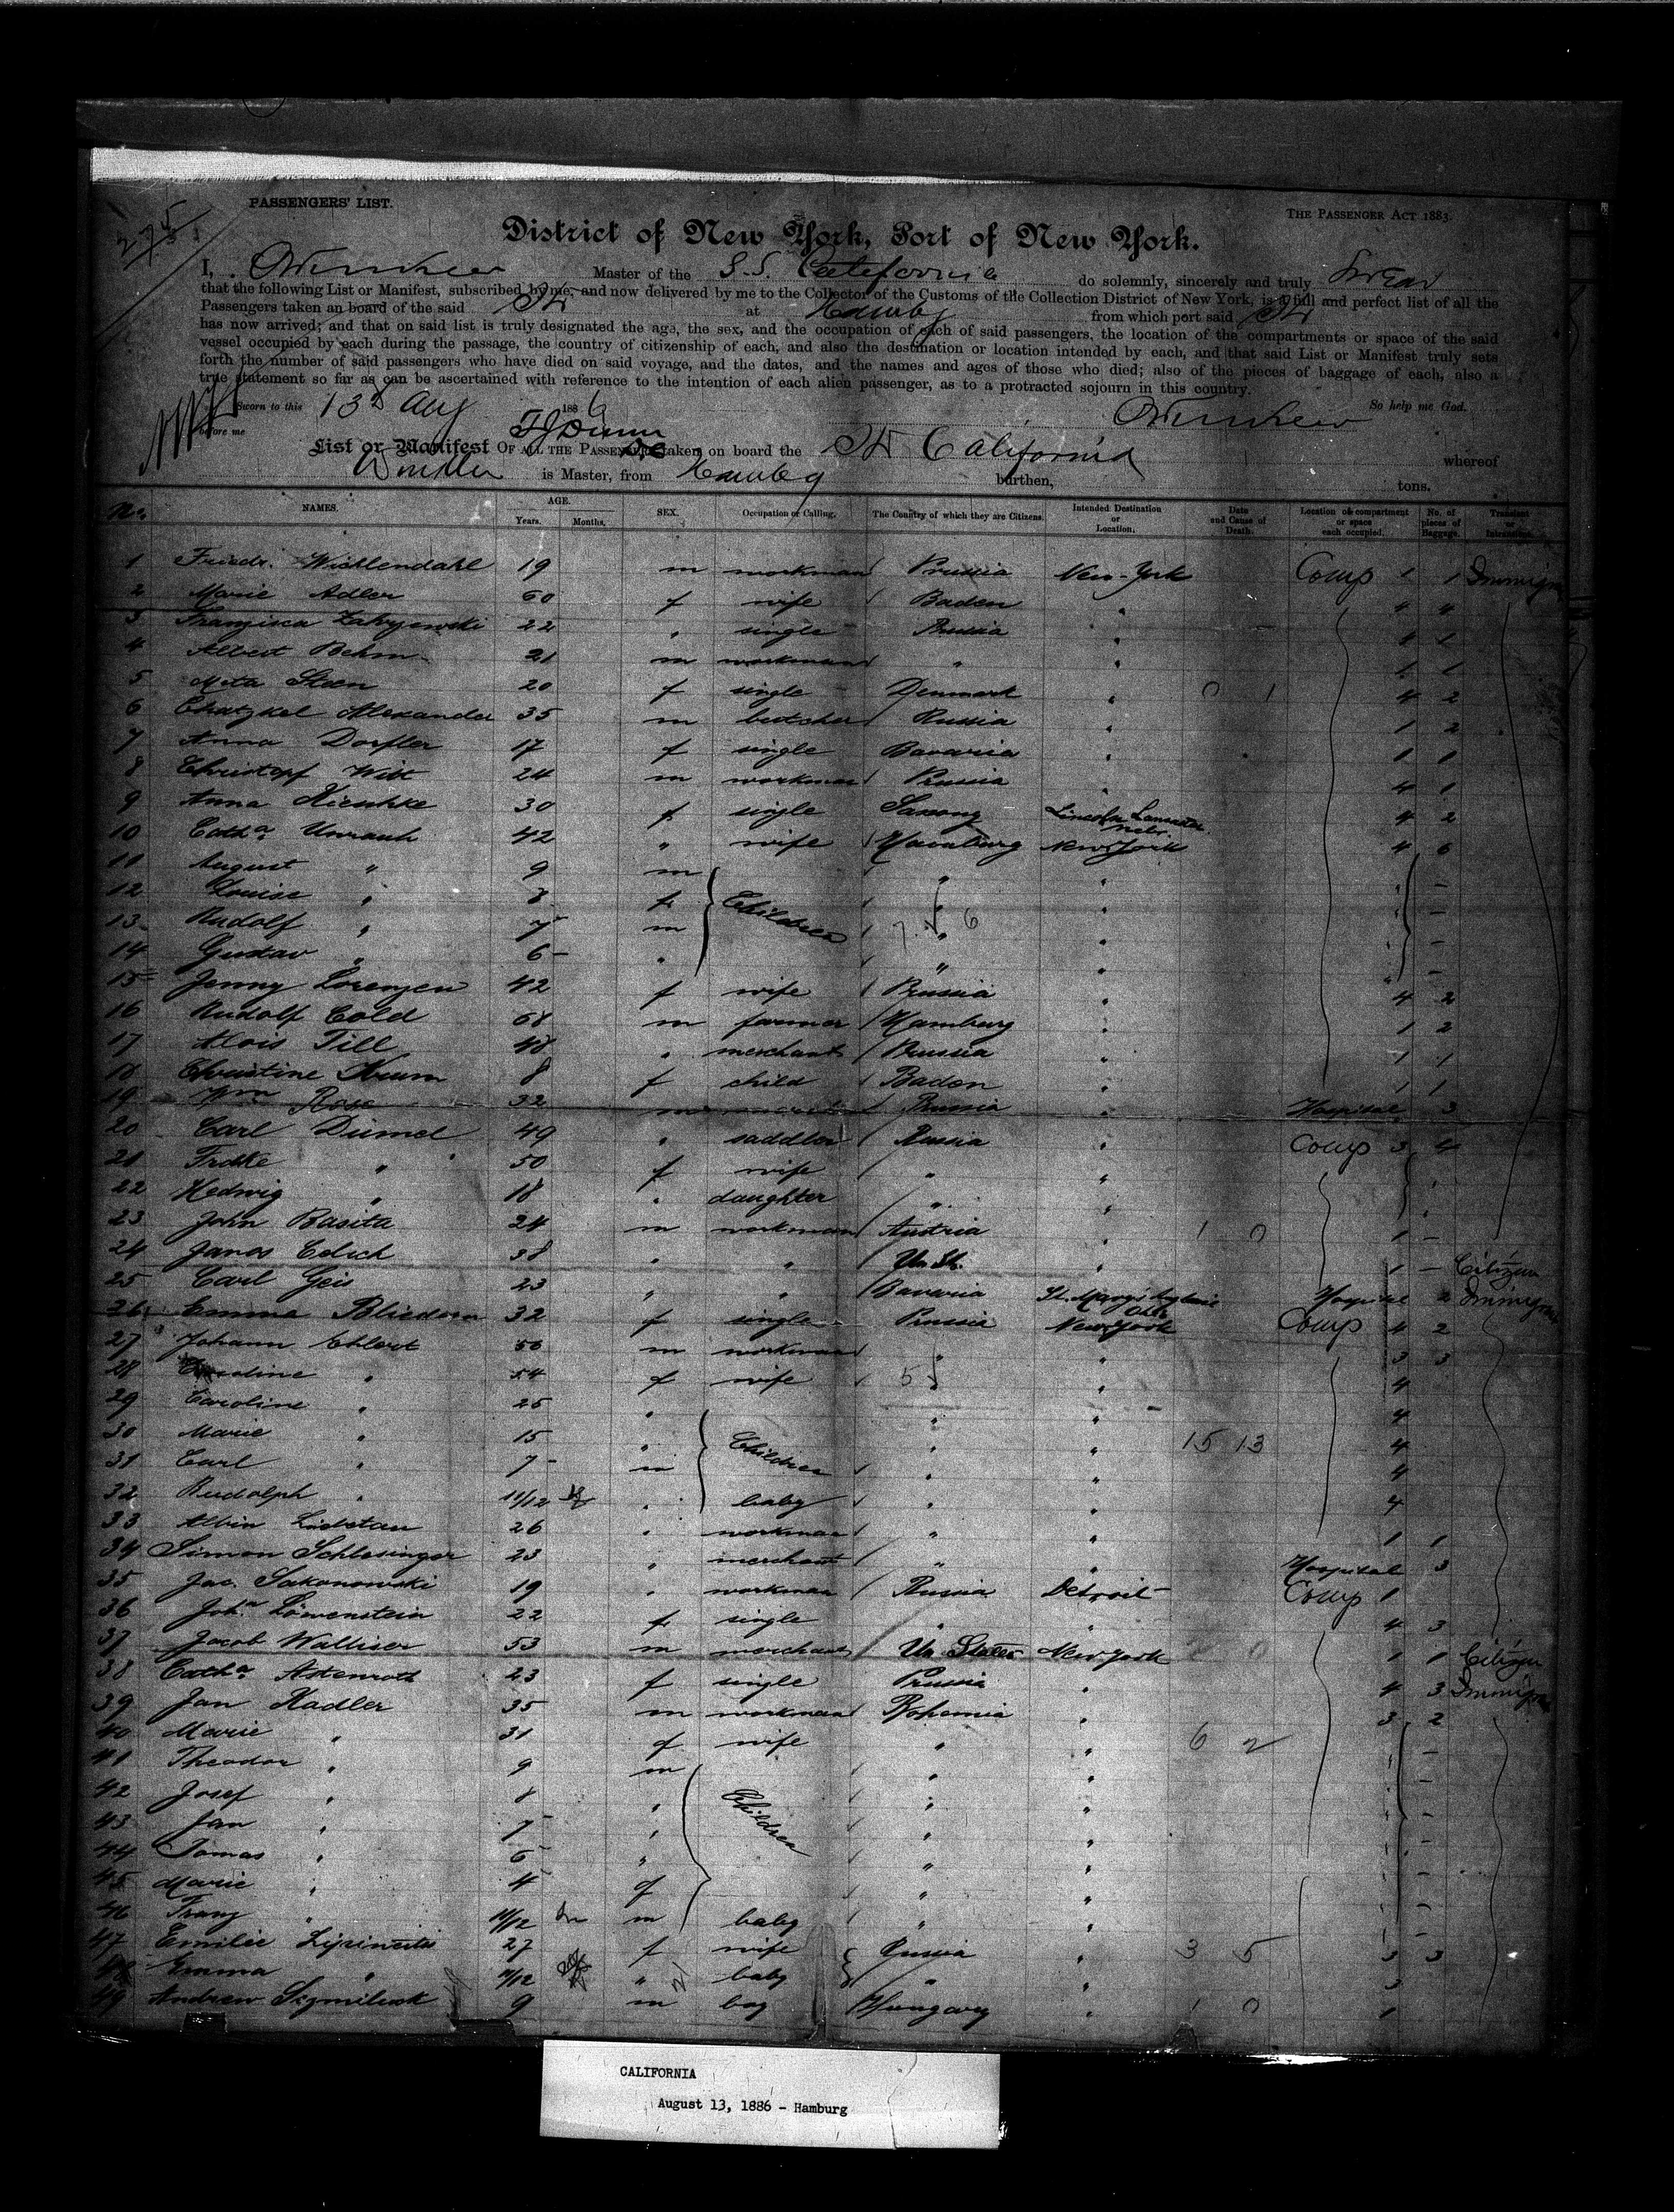 PASSENGERS' LIST.
THE PASSENGER ACT 1883.
District of New York, Port of New York.
I, Master of the S.S. California do solemnly, sincerely and truly swear
that the following List or Manifest, subscribed by me, and now delivered by me to the Collector of the Customs of the Collection District of New York, is a full and perfect list of all the
Passengers taken on board of the said at Hambg from which port said
has now arrived; and that on said list is truly designated the age, the sex, and the occupation of each of said passengers, the location of the compartments or space of the said
vessel occupied by each during the passage, the country of citizenship of each, and also the destination or location intended by each, and that said List or Manifest truly sets
forth the number of said passengers who have died on said voyage, and the dates, and the names and ages of those who died; also of the pieces of baggage of each, also a
true statement so far as can be ascertained with reference to the intention of each alien passenger, as to a protracted sojourn in this country.
Sworn to this 13th Aug 1886 So help me God.
before me
List or Manifest OF ALL THE PASSENGERS taken on board the California whereof
Winckler is Master, from Hambg burthen, tons.
No. NAMES. AGE. Years. Months. SEX. Occupation or Calling. The Country of which they are Citizens. Intended Destination or Location. Date and Cause of Death. Location of compartment or space each occupied. No. of pieces of Baggage. Transient or
1 Friedr. Wichlendahl 19 m workman Prussia New-York Comp 1 1
2 Marie Adler 60 f wife Baden " 4 4
3 Franziska Zakrzewski 22 " single Prussia " 4 1
4 Albert Behm 21 m workman " " 1 1
5 Meta Steen 20 f single Denmark " 0 1 4 2
6 Chatzkel Alexander 35 m butcher Russia " 1 2
7 Anna Dorfler 17 f single Bavaria " 1 1
8 Christopf Witt 24 m workman Prussia " 4 1
9 Anna Nieschke 30 f single Saxony Lincoln Lancaster Nebr. 4 2
10 Cath.a Unrauh 42 " wife Hamburg New York 4 6
11 August " 9 m " " -
12 Louise " 8 f Children " " -
13 Rudolf " 7 m " " -
14 Gustav " 6 " " " -
15 Jenny Lorenzen 42 f wife Prussia " 4 2
16 Rudolf Cold 68 m farmer Hamburg " 1 2
17 Alois Till 48 " merchant Prussia " 1 1
18 Christine Krum 8 f child Baden " 1 1
19 Wm Rose 32 m Prussia " Hospital 3
20 Carl Dümel 49 " saddler Russia " Comp 3 4
21 Frdke " 50 f wife " "
22 Hedwig " 18 " daughter " "
23 John Basita 24 m workman Austria " 1 0 1 -
24 Janos Celich 38 " " Un St. " 1 - Citizen
25 Carl Geis 23 " " Bavaria St. Marys Ohio Hospital 2
26 Emma Bliedorn 32 f single Prussia New York Comp 4 2
27 Johann Ehlert 56 m workman " " 3 3
28 Caroline " 54 f wife " " 4
29 Caroline " 25 " " " 4
30 Marie " 15 " Children " " 15 13 4
31 Carl " 7 m " " 4
32 Rudolph " 11/12 " baby " " 4
33 Albin 26 " workman " " 1 1
34 Simon Schlesinger 23 " merchant " " Hospital 3
35 Jac. Sakonowski 19 " workman Russia Detroit Comp 1
36 Joh.a Löwenstein 22 f single " " 4 3
37 Jacob Walliser 53 m merchant Un States New York 2 0 1 1 Citizen
38 Cath.a Astenroth 23 f single Prussia " 4 3
39 Jan Kadler 35 m workman Bohemia " 3 2
40 Marie " 31 f wife " " 6 2 -
41 Theodor " 9 m " " -
42 Josef " 8 " Children " " -
43 Jan " 7 " " " -
44 Tomas " 6 " " " -
45 Marie " 4 f " " -
46 Franz " 11/12 m baby " " -
47 Emilie 27 f wife Russia " 3 5 3 3
48 Emma " 11/12 " baby " " 3
49 Andrew 9 m boy Hungary " 1 0 1
CALIFORNIA
August 13, 1886 - Hamburg